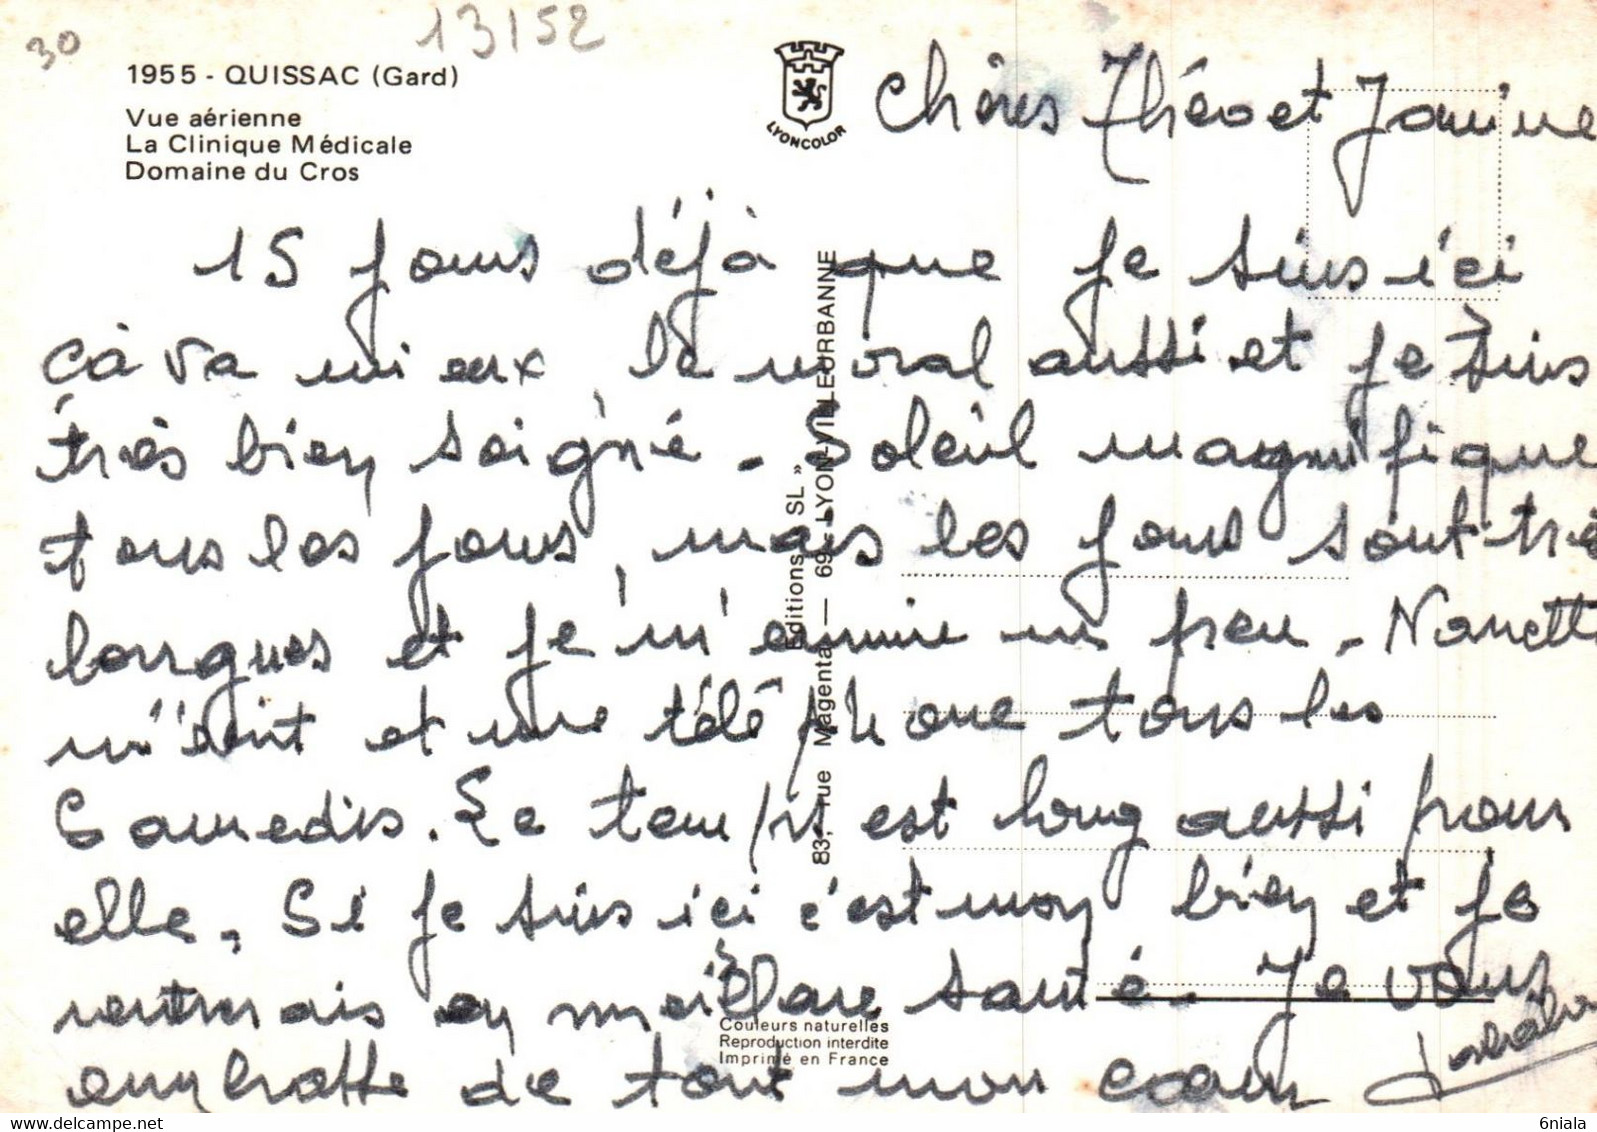 30
13152
1955 - QUISSAC (Gard)
Vue aérienne
La Clinique Médicale
Domaine du Cros
LYONCOLOR
Chères Théo et Janine
15 jours déjà que je suis ici
çà va mieux, le moral aussi et je suis
très bien soigné - Soleil magnifique
tous les jours, mais les jours sont trè
longues et je m'ennuie un peu - Nanett
m'écrit et me téléphone tous les
Samedis. Le temps est long aussi pour
elle. Si je suis ici c'est mon bien et je
rentrerais en meillare santé - Je vous
embrasse de tout mon coeur
Editions « SL »
83, rue Magenta — 69 - LYON-VILLEURBANNE
Couleurs naturelles
Reproduction interdite
Imprimé en France
6niala